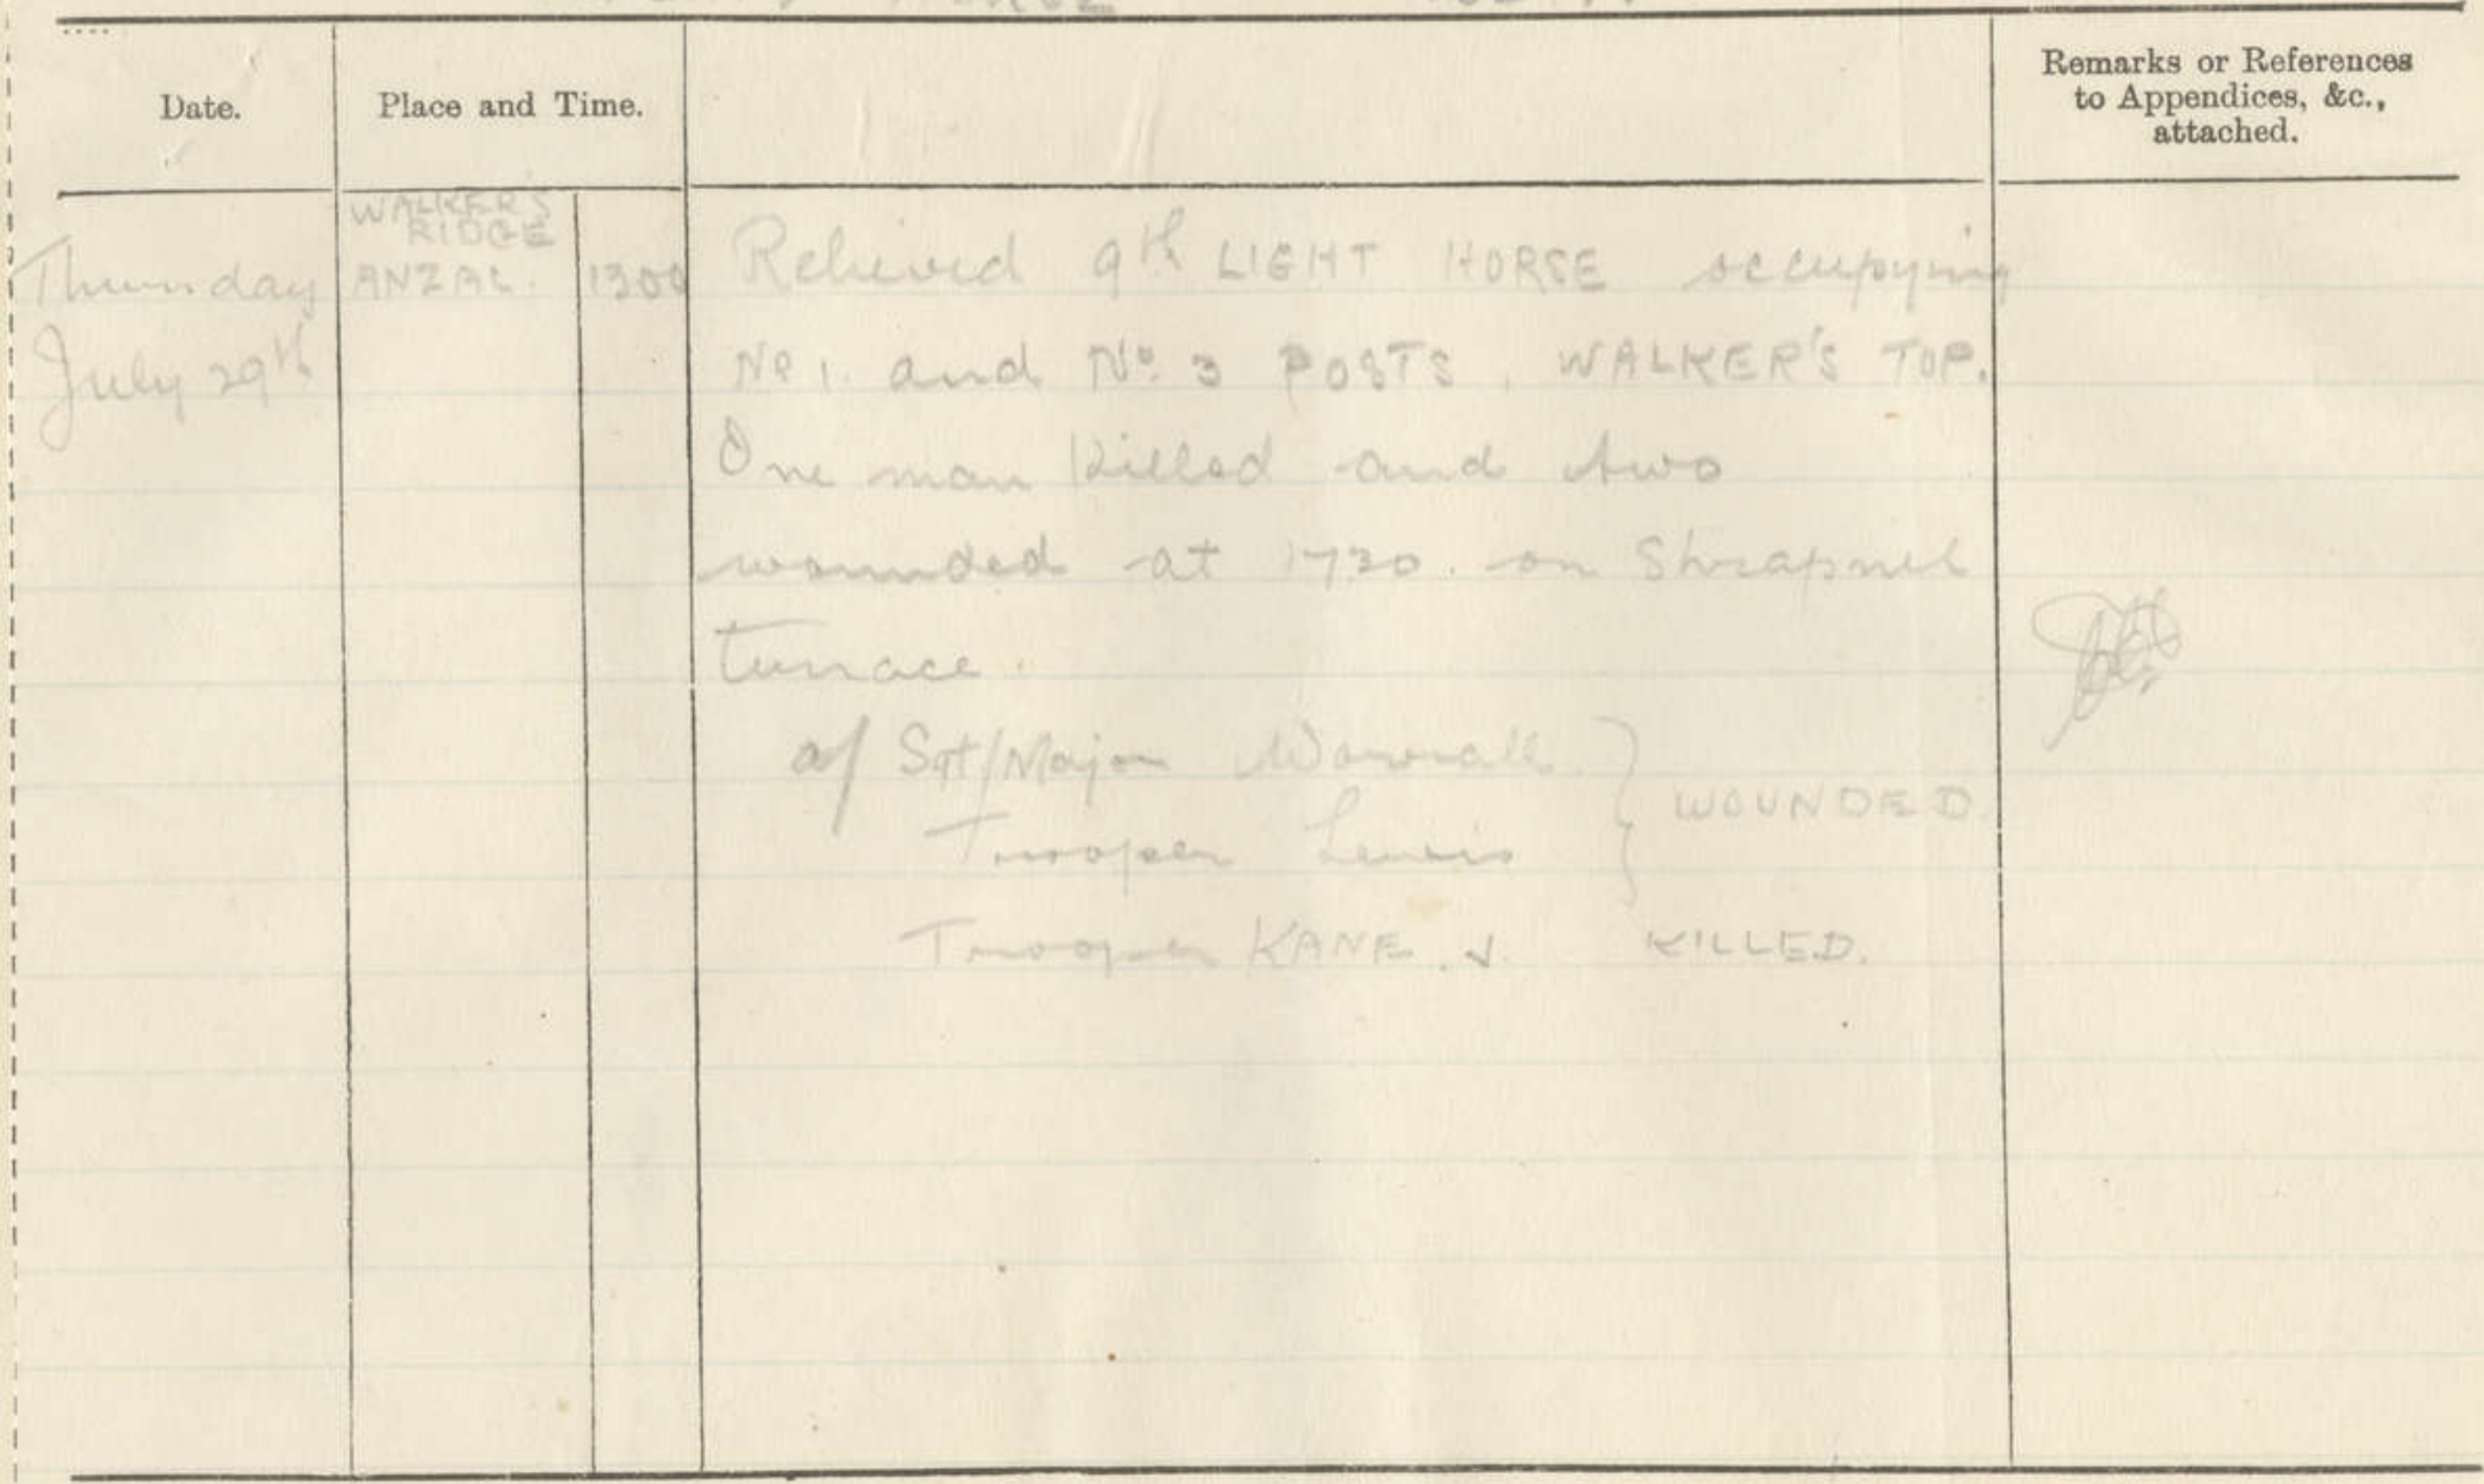 Date.
Place and Time.
Remarks or References
to Appendices, &c.,
attached.
WALKER'S
RIDGE
Thursday ANZAC. 1300 Relieved 9th LIGHT HORSE occupying
July 29th No 1. and No. 3 POSTS, WALKER'S TOP.
One man killed and two
wounded at 1730. on Shrapnel
terrace.
a/ Sgt/Major Worrall
WOUNDED.
Trooper Lewis
Trooper KANE. J. KILLED.